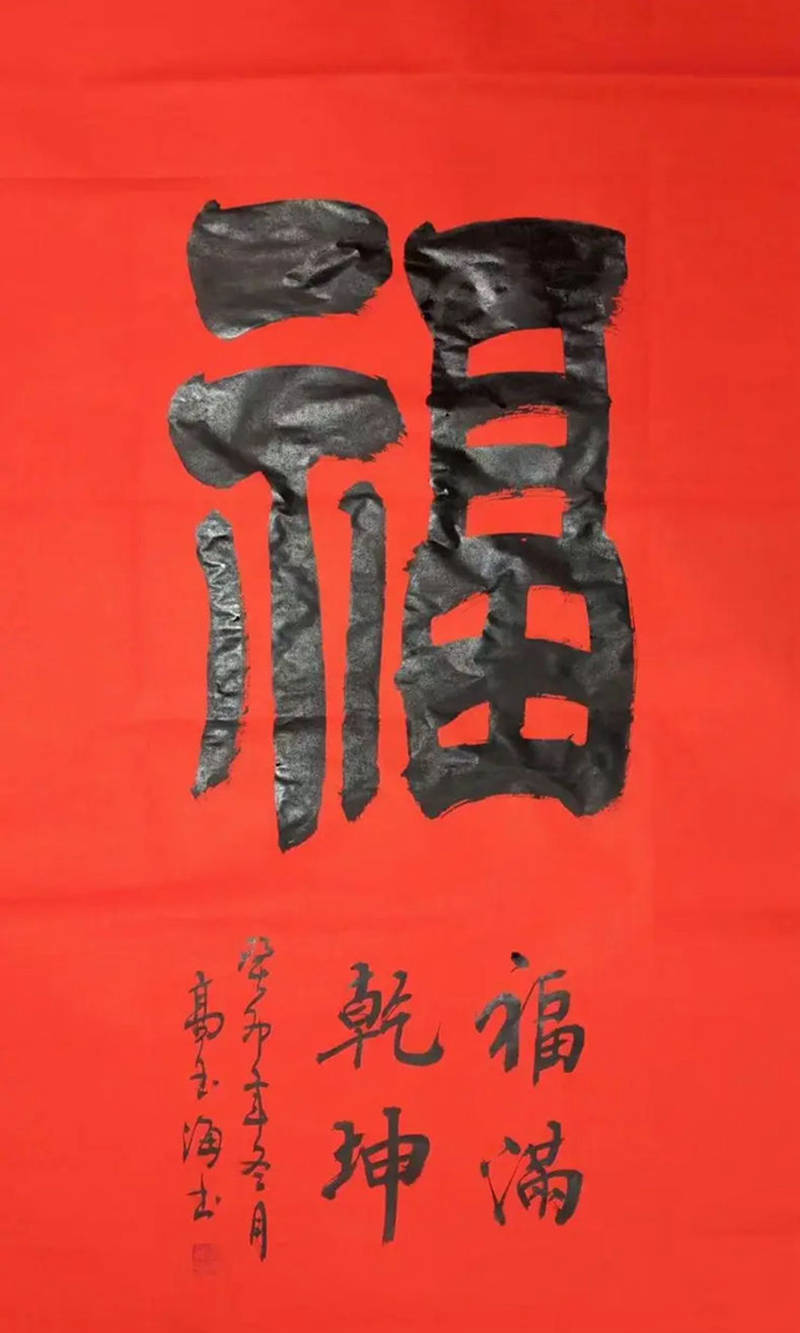 福
福满
乾坤
癸卯年冬月
高玉海书